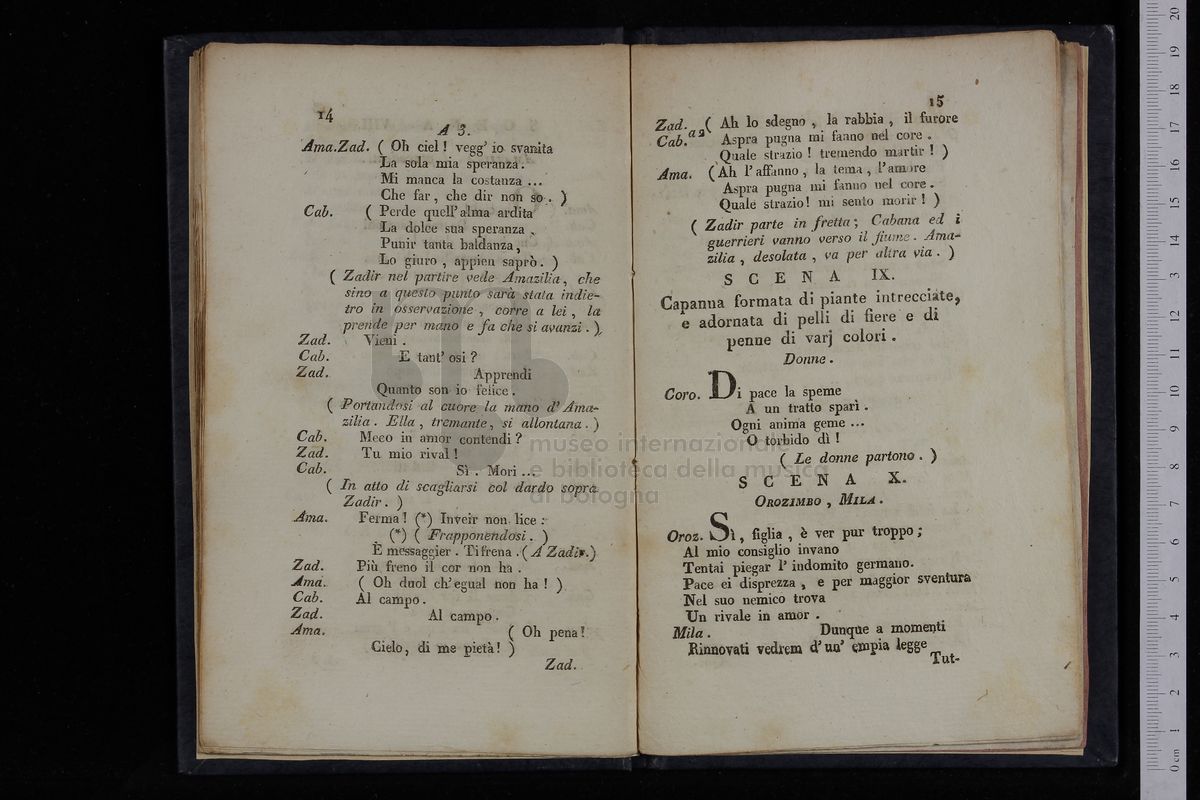 14
A 3.
Ama.Zad. ( Oh ciel ! vegg' io svanita
La sola mia speranza.
Mi manca la costanza ...
Che far, che dir non so. )
Cab. ( Perde quell' alma ardita
La dolce sua speranza.
Punir tanta baldanza,
Lo giuro, appien saprò. )
( Zadir nel partire vede Amazilia, che
sino a questo punto sarà stata indie-
tro in osservazione, corre a lei, la
prende per mano e fa che si avanzi. )
Zad. Vieni.
Cab. E tant' osi ?
Zad. Apprendi
Quanto son io felice.
( Portandosi al cuore la mano d' Ama-
zilia. Ella, tremante, si allontana. )
Cab. Meco in amor contendi ?
Zad. Tu mio rival !
Cab. Sì. Mori ...
( In atto di scagliarsi col dardo sopra
Zadir. )
Ama. Ferma ! (*) Inveir non lice :
(*) ( Frapponendosi. )
È messaggier. Ti frena. ( A Zadir. )
Zad. Più freno il cor non ha.
Ama. ( Oh duol ch' egual non ha ! )
Cab. Al campo.
Zad. Al campo.
Ama. ( Oh pena !
Cielo, di me pietà ! )
Zad.
15
Zad. Cab. a 2 ( Ah lo sdegno, la rabbia, il furore
Aspra pugna mi fanno nel core.
Quale strazio ! tremendo martir ! )
Ama. ( Ah l' affanno, la tema, l' amore
Aspra pugna mi fanno nel core.
Quale strazio ! mi sento morir ! )
( Zadir parte in fretta ; Cabana ed i
guerrieri vanno verso il fiume. Ama-
zilia, desolata, va per altra via. )
SCENA IX.
Capanna formata di piante intrecciate,
e adornata di pelli di fiere e di
penne di varj colori.
Donne.
Coro. Di pace la speme
A un tratto sparì.
Ogni anima geme ...
O torbido dì !
( Le donne partono. )
SCENA X.
OROZIMBO, MILA.
Oroz. Sì, figlia, è ver pur troppo ;
Al mio consiglio invano
Tentai piegar l' indomito germano.
Pace ei disprezza, e per maggior sventura
Nel suo nemico trova
Un rivale in amor.
Mila. Dunque a momenti
Rinnovati vedrem d' un' empia legge
Tut-
museo internazionale
e biblioteca della musica
di bologna
0 cm 1 2 3 4 5 6 7 8 9 10 11 12 13 14 15 16 17 18 19 20